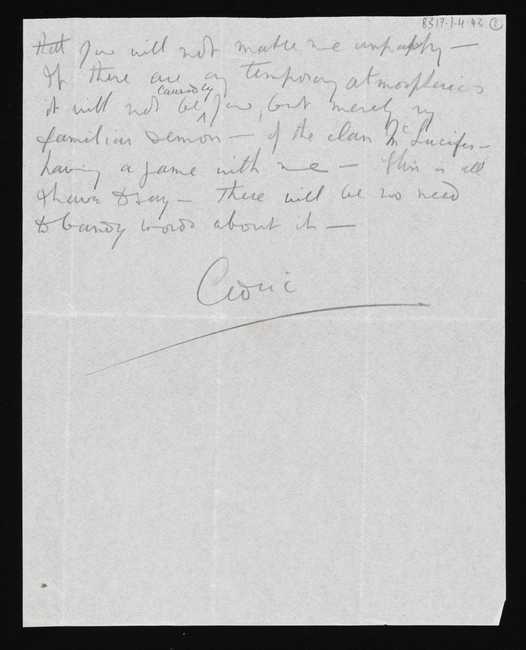 8317.1.4.43 2
that you will not make me unhappy —
If there are any temporary atmospherics
it will not be caused by you, but merely my
familiar demon — of the clan McLucifer —
having a game with me — This is all
I have to say — There will be no need
to bandy words about it —
Cedric